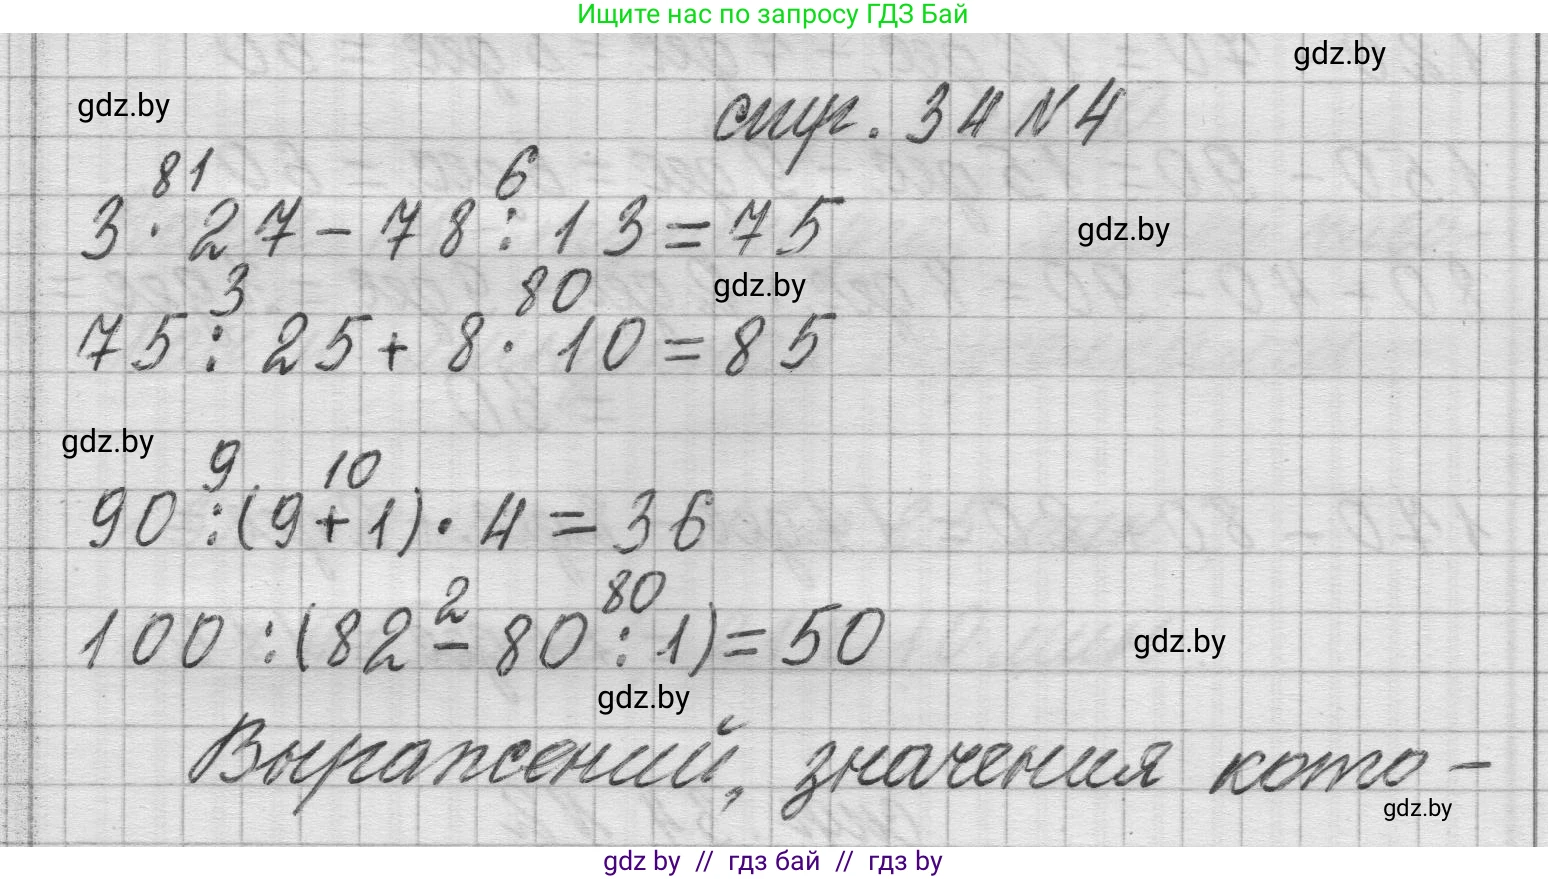 Ищите нас по запросу ГДЗ Бай
gdz.by
gdz.by
стр. 34 №4
81 6
3 · 27 - 78 : 13 = 75
gdz.by
3 80
gdz.by
75 : 25 + 8 · 10 = 85
gdz.by
9 10
90 : (9 + 1) · 4 = 36
2 80
100 : (82 - 80 : 1) = 50
gdz.by
gdz.by
Выражений, значения кото-
gdz.by
gdz by // гдз бай // гдз by